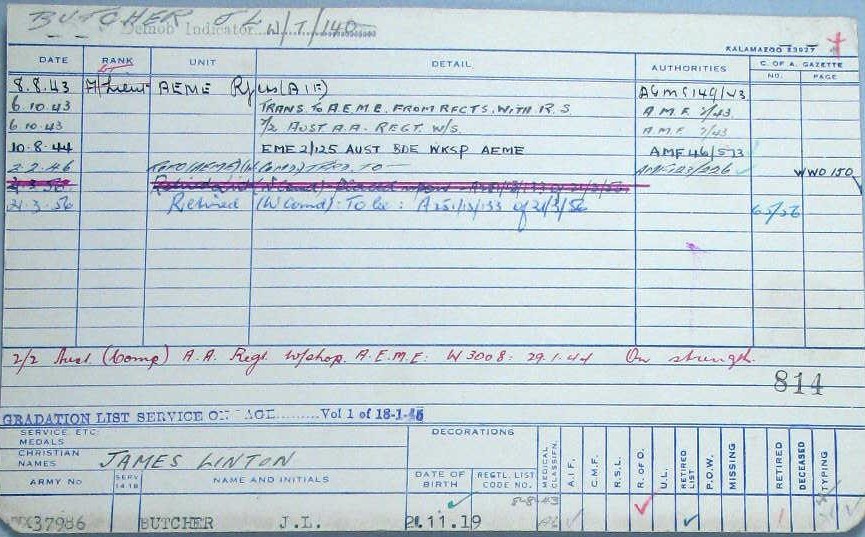 BUTCHER J L W/T/140
Demob Indicator
KALAMAZOO 83927
DATE RANK UNIT DETAIL AUTHORITIES C. OF A. GAZETTE
NO. PAGE
8.8.43 A/Lieut AEME (AIF) AGMS 149/43
6.10.43 TRANS TO A.E.M.E. FROM RFCTS. WITH R.S. A.M.F. 7/43
6.10.43 7/2 AUST A.A. REGT. W/S. A.M.F. 7/43
10.8.44 EME 2/125 AUST BDE WKSP AEME AMF 46/573
2.2.46 WWO 150
21.3.56 Retired (W Comd): To be: A251/13/133 of 21/3/56 65/56
2/2 Aust (Comp) A.A. Regt W/shop. A.E.M.E: W3008: 29.1.44 On strength.
814
GRADATION LIST SERVICE ON Vol 1 of 18-1-46
SERVICE ETC: DECORATIONS
MEDALS
CHRISTIAN
NAMES JAMES LINTON
ARMY No SERV 14-18 NAME AND INITIALS DATE OF BIRTH REGTL. LIST CODE NO. MEDICAL CLASSIFN. A.I.F. C.M.F. R.S.L. R. OF O. U.L. RETIRED LIST P.O.W. MISSING RETIRED DECEASED TYPING
8-8-43
37986 BUTCHER J.L. 21.11.19 A2